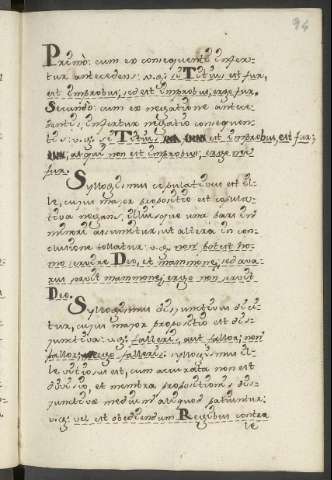 94
Primò: cum ex consequente infer-
tur antecedens: v.g: si Titius est fur,
est improbus, sed est improbus, ergo fur.
Secundò: cum ex negatione antece-
dentis, infertur negatio consequen-
tis: v:g: si Titius est improbus, est fur;
atqui non est improbus, ergo nec
fur.
Syllogismus copulativus est il-
le, cujus major propositio est copula-
tiva negans, illiusque una pars in
minori assumitur, ut altera in con-
clusione tollatur: v.g. non potest ho-
mo servire Deo, et mammonæ, sed ava-
rus servit mammonæ, ergo non servit
Deo.
Syllogismus disjunctivus dici-
tur, cujus major propositio est dis-
junctiva: v:g: falleris, aut fallor; non
fallor; ergo falleris: syllogismus il-
le vitiosus est, cum accurata non est
divisio, et membra propositionis dis-
junctivæ medium aliquod patiuntur:
v:g: vel est obediendum Regibus contra
le